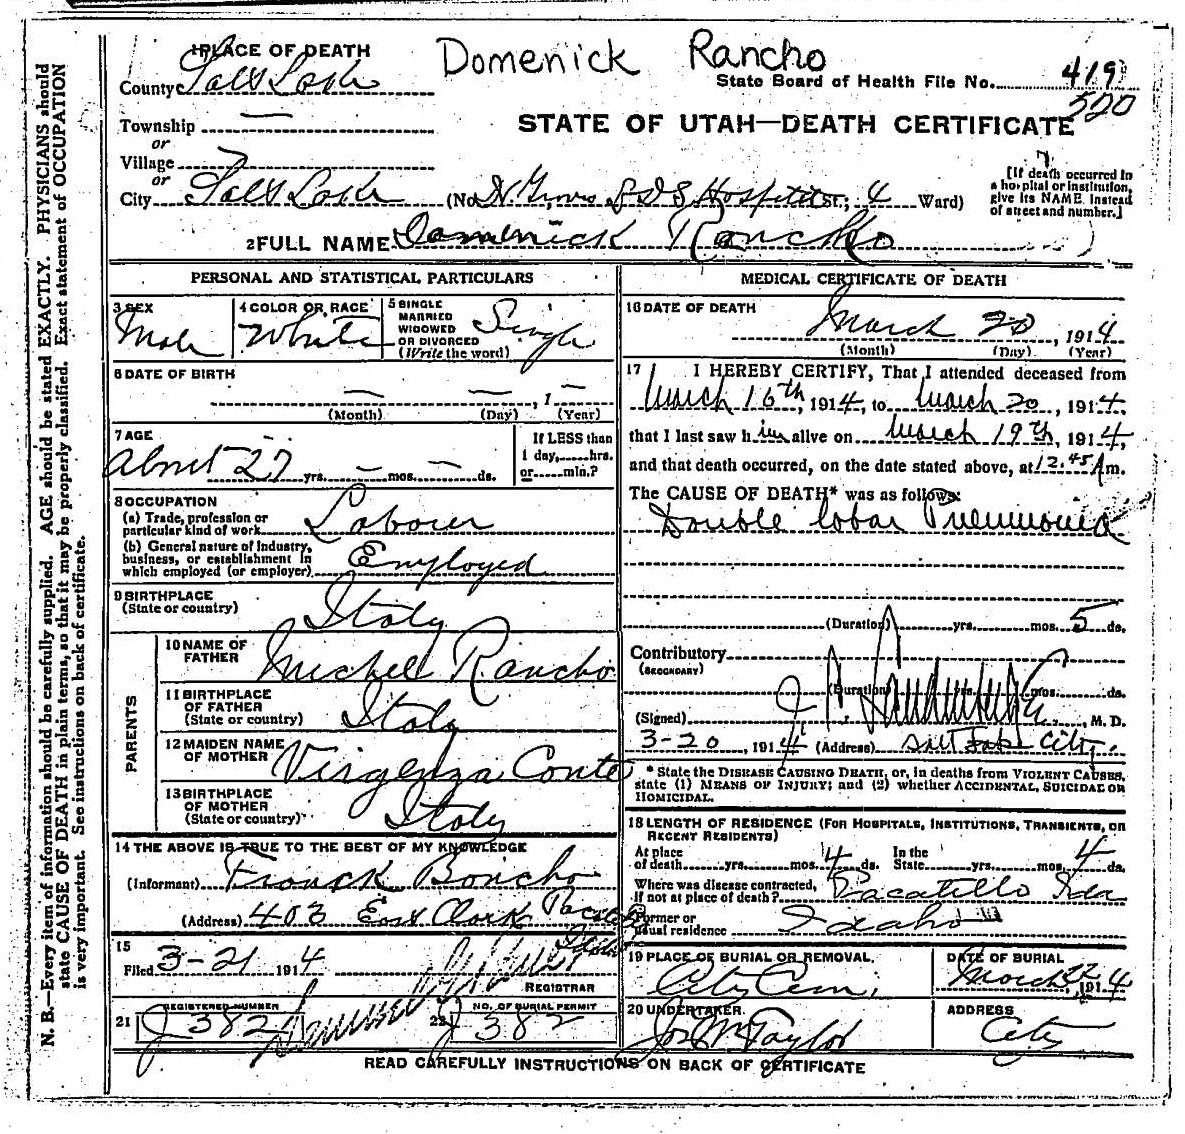 Domenick Rancho
1 PLACE OF DEATH
County Salt Lake
State Board of Health File No. 419
520
Township —
or
Village
or
City Salt Lake (No. LDS Hospital St.; 4 Ward)
STATE OF UTAH—DEATH CERTIFICATE
[If death occurred in
a hospital or institution,
give its NAME instead
of street and number.]
2 FULL NAME Domenick Rancho
PERSONAL AND STATISTICAL PARTICULARS
3 SEX
Male
4 COLOR OR RACE
White
5 SINGLE
MARRIED
WIDOWED
OR DIVORCED
(Write the word)
Single
6 DATE OF BIRTH
— — , 1 —
(Month) (Day) (Year)
7 AGE
About 27 yrs. — mos. — ds.
If LESS than
1 day,......hrs.
or......min.?
8 OCCUPATION
(a) Trade, profession or
particular kind of work Laborer
(b) General nature of industry,
business, or establishment in
which employed (or employer) Employed
9 BIRTHPLACE
(State or country) Italy
PARENTS
10 NAME OF
FATHER Michel Rancho
11 BIRTHPLACE
OF FATHER
(State or country) Italy
12 MAIDEN NAME
OF MOTHER Virgenza Conte
13 BIRTHPLACE
OF MOTHER
(State or country) Italy
14 THE ABOVE IS TRUE TO THE BEST OF MY KNOWLEDGE
(Informant) Franck Boncho
(Address) 403 East Clark Pocatello
Idaho
15
Filed 3-21 1914
REGISTRAR
REGISTERED NUMBER
21 J 382
NO. OF BURIAL PERMIT
22 J 382
MEDICAL CERTIFICATE OF DEATH
16 DATE OF DEATH
March 20, 1914
(Month) (Day) (Year)
17 I HEREBY CERTIFY, That I attended deceased from
March 16th, 1914, to March 20, 1914,
that I last saw him alive on March 19th, 1914,
and that death occurred, on the date stated above, at 12.45 A m.
The CAUSE OF DEATH* was as follows:
Double lobar Pneumonia
(Duration) yrs. mos. 5 ds.
Contributory
(SECONDARY)
(Duration) yrs. mos. ds.
(Signed) M. D.
3-20, 1914 (Address) Salt Lake City.
* State the DISEASE CAUSING DEATH, or, in deaths from VIOLENT CAUSES,
state (1) MEANS OF INJURY; and (2) whether ACCIDENTAL, SUICIDAL OR
HOMICIDAL.
18 LENGTH OF RESIDENCE (FOR HOSPITALS, INSTITUTIONS, TRANSIENTS, OR
RECENT RESIDENTS)
At place
of death yrs. mos. 4 ds.
In the
State yrs. mos. 4 ds.
Where was disease contracted,
if not at place of death? Pocatillo Ida
Former or
usual residence Idaho
19 PLACE OF BURIAL OR REMOVAL.
City Cem.
DATE OF BURIAL
March 22 1914
20 UNDERTAKER.
Jos Wm Taylor
ADDRESS
City
READ CAREFULLY INSTRUCTIONS ON BACK OF CERTIFICATE
N. B.—Every item of information should be carefully supplied. AGE should be stated EXACTLY. PHYSICIANS should
state CAUSE OF DEATH in plain terms, so that it may be properly classified. Exact statement of OCCUPATION
is very important. See instructions on back of certificate.